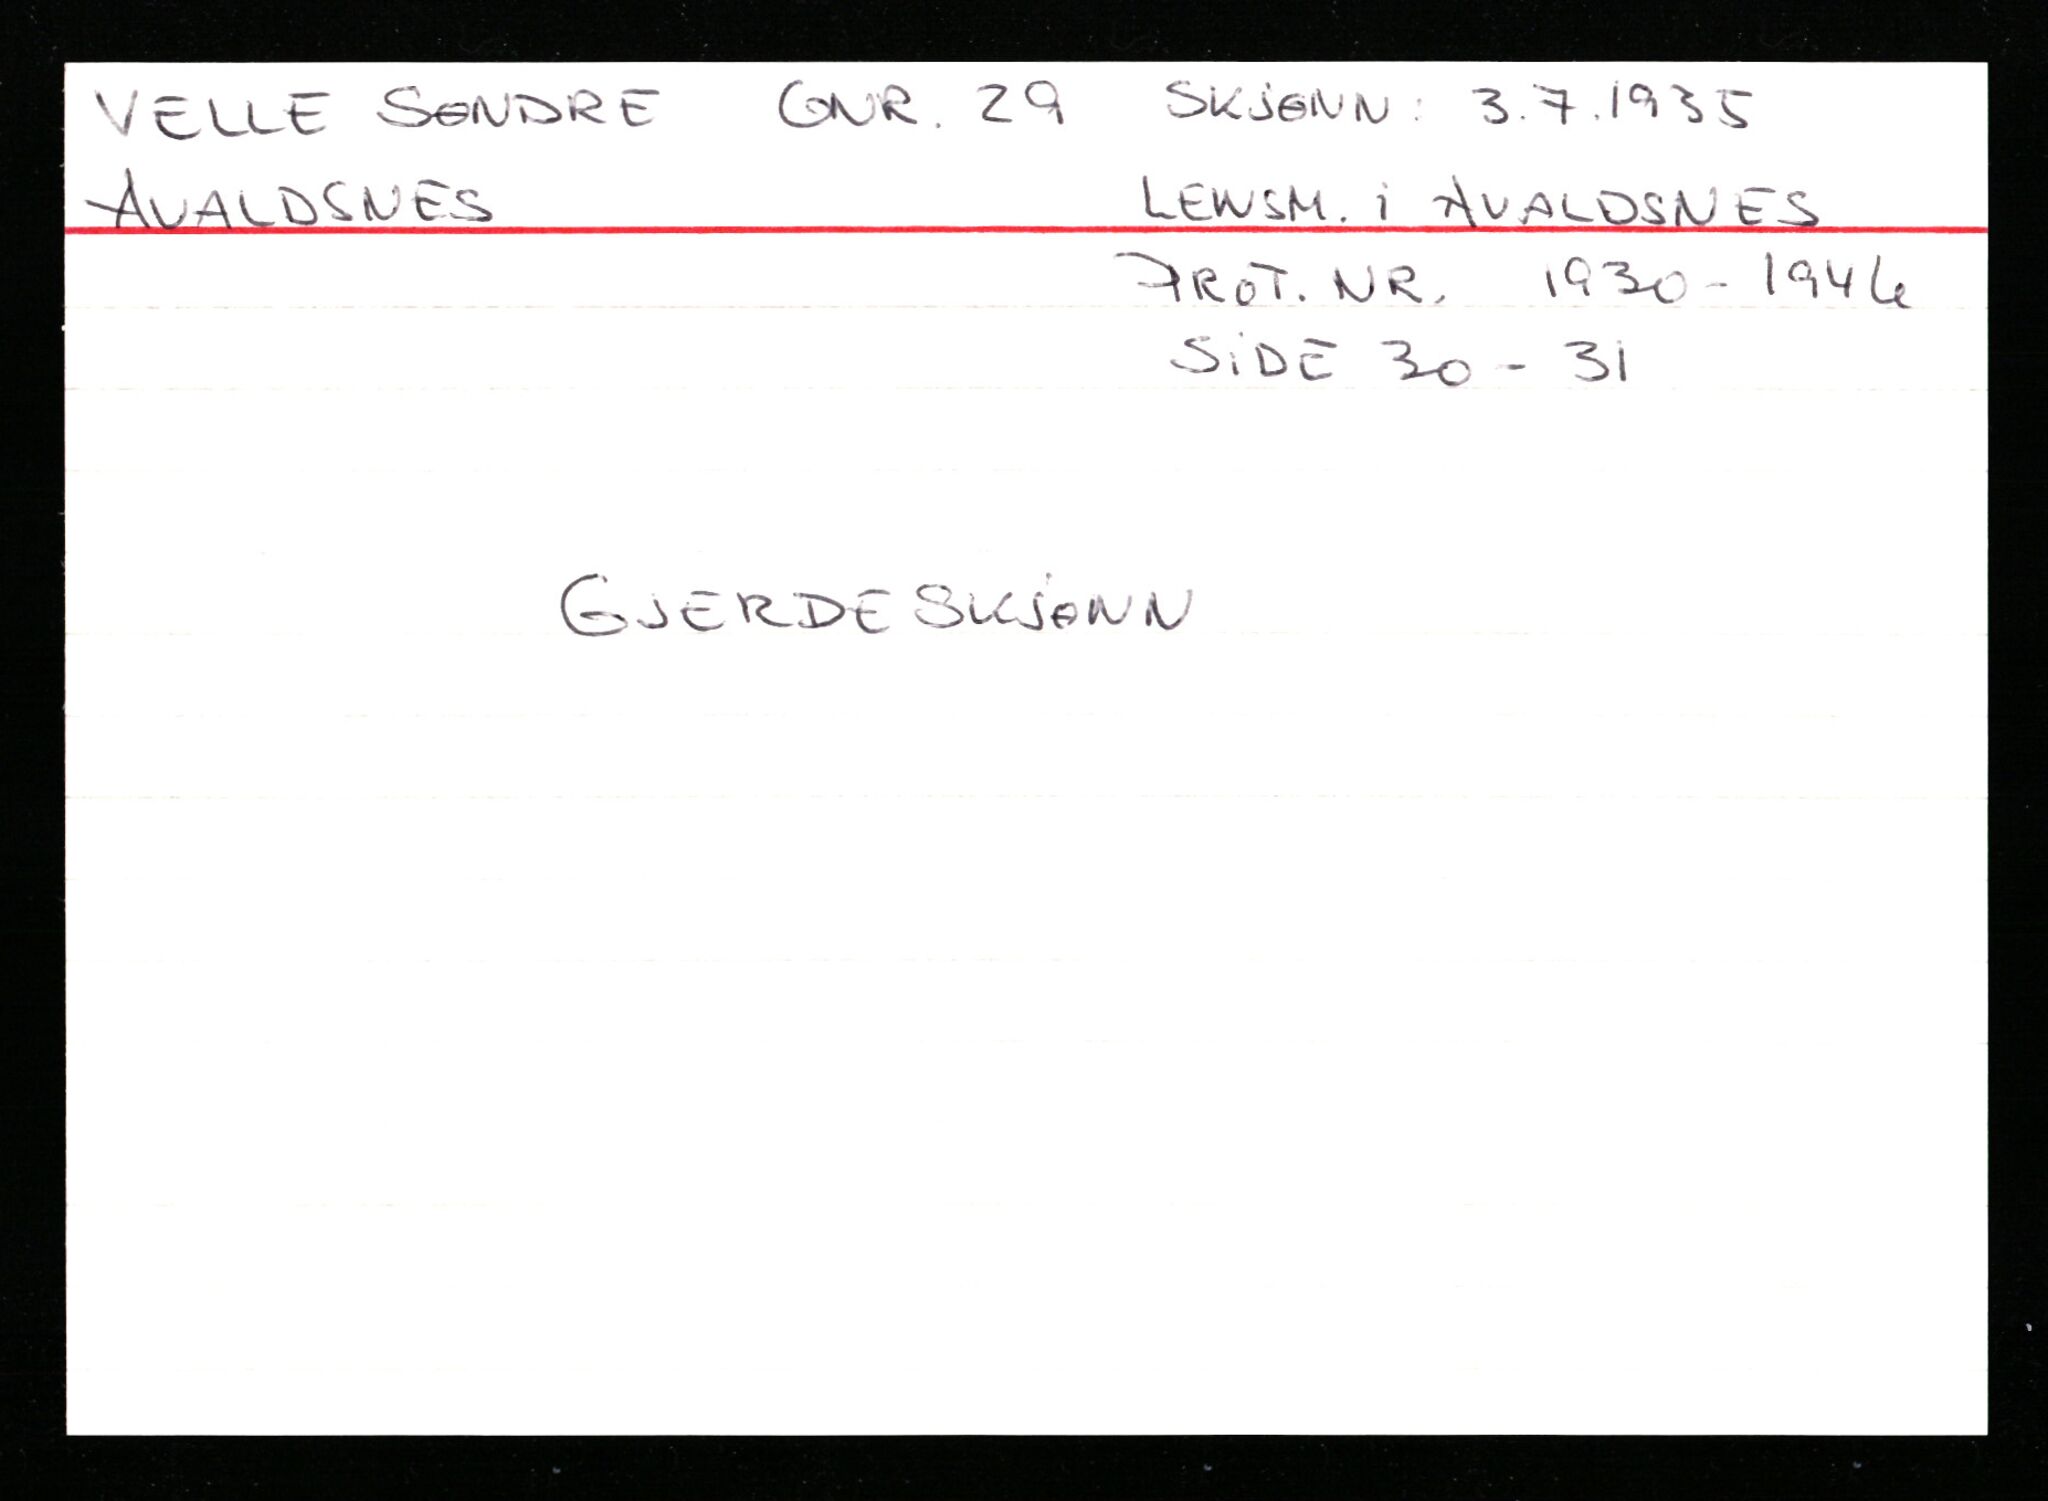 VELLE SØNDRE GNR. 29 SKJØNN: 3.7.1935
AVALDSNES LENSM. i AVALDSNES
PROT. NR. 1930-1944
SiDE 30-31
GJERDESKJØNN